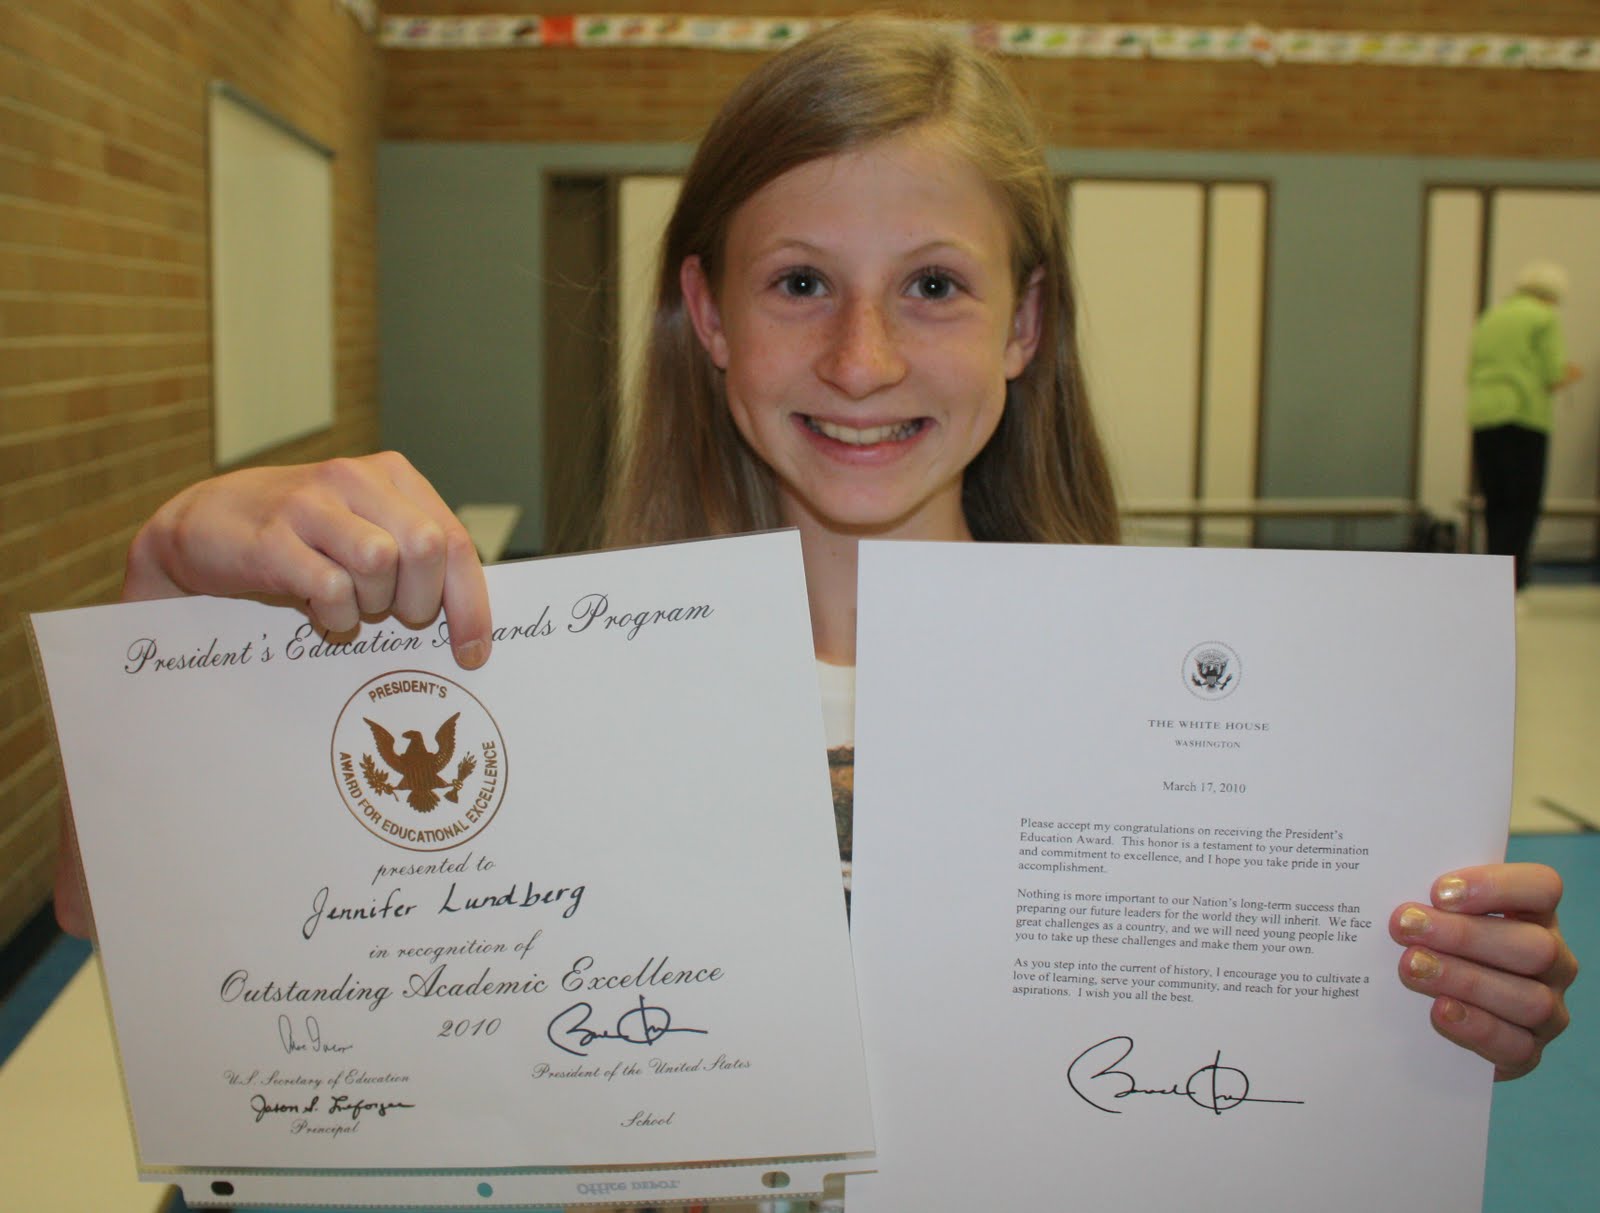 President's Education Awards Program
PRESIDENT'S
AWARD FOR EDUCATIONAL EXCELLENCE
presented to
Jennifer Lundberg
in recognition of
Outstanding Academic Excellence
2010
U.S. Secretary of Education
President of the United States
Principal
School
Office DEPOT.
THE WHITE HOUSE
WASHINGTON
March 17, 2010
Please accept my congratulations on receiving the President's
Education Award. This honor is a testament to your determination
and commitment to excellence, and I hope you take pride in your
accomplishment.
Nothing is more important to our Nation's long-term success than
preparing our future leaders for the world they will inherit. We face
great challenges as a country, and we will need young people like
you to take up these challenges and make them your own.
As you step into the current of history, I encourage you to cultivate a
love of learning, serve your community, and reach for your highest
aspirations. I wish you all the best.